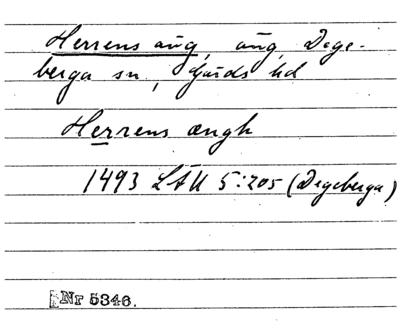 Herrens äng, äng, Dege-
berga sn, Gärds hd
Herrens ængh
1493 LÄU 5:205 (Degeberga)
Nr 5346.